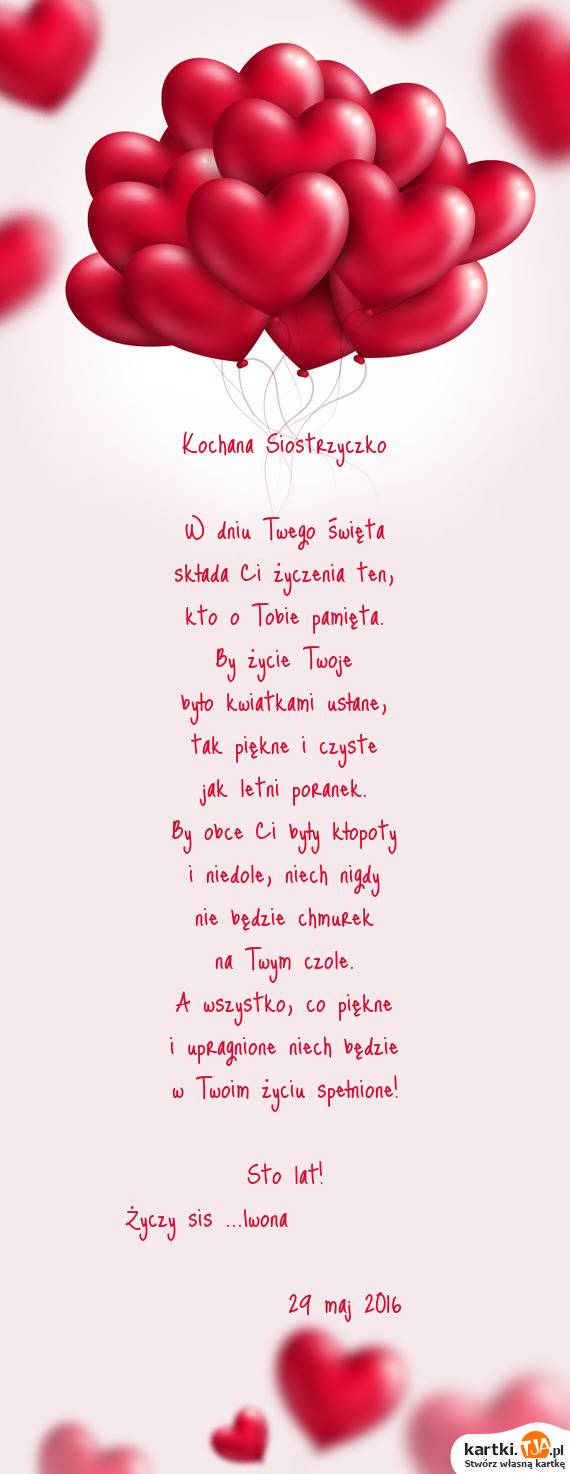 Kochana Siostrzyczko
W dniu Twego święta
składa Ci życzenia ten,
kto o Tobie pamięta.
By życie Twoje
było kwiatkami usłane,
tak piękne i czyste
jak letni poranek.
By obce Ci były kłopoty
i niedole, niech nigdy
nie będzie chmurek
na Twym czole.
A wszystko, co piękne
i upragnione niech będzie
w Twoim życiu spełnione!
Sto lat!
Życzy sis ...Iwona
29 maj 2016
kartki.TJA.pl
Stwórz własną kartkę